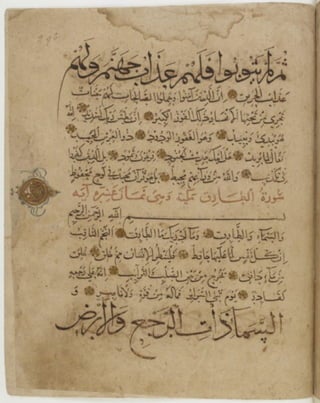 ثم لم يتوبوا فلهم عذاب جهنم ولهم
عذاب الحريق ان الذين آمنوا وعملوا الصالحات لهم جنات
تجري من تحتها الأنهار ذلك الفوز الكبير ان بطش ربك لشديد انه
هو يبدئ ويعيد وهو الغفور الودود ذو العرش المجيد
فعال لما يريد هل أتاك حديث الجنود فرعون وثمود بل الذين كفروا
في تكذيب والله من ورائهم محيط بل هو قرآن مجيد في لوح محفوظ
سورة الطارق مكية وهي ثمان عشرة آية
بسم الله الرحمن الرحيم
والسماء والطارق وما أدراك ما الطارق النجم الثاقب
ان كل نفس لما عليها حافظ فلينظر الإنسان مم خلق خلق
من ماء دافق يخرج من بين الصلب والترائب انه على رجعه
لقادر يوم تبلى السرائر فما له من قوة ولا ناصر و
السماء ذات الرجع والأرض